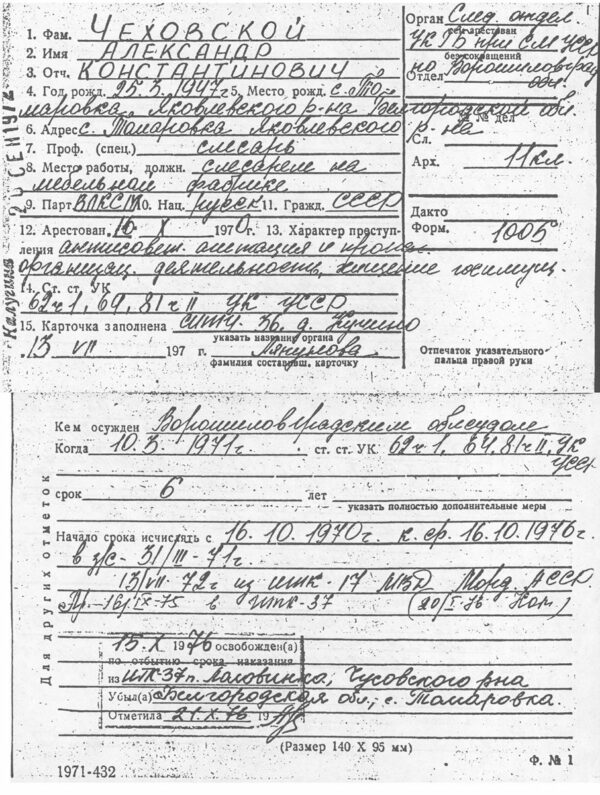 1. Фам. ЧЕХОВСКОЙ
2. Имя АЛЕКСАНДР
3. Отч. КОНСТАНТИНОВИЧ
4. Год рожд. 25.3.1947г 5. Место рожд. с. То-
маровка Яковлевского р-на Белгородской обл.
6. Адрес с. Томаровка Яковлевского р-на
7. Проф. (спец.) слесарь
8. Место работы, должн. слесарем на
мебельной фабрике
9. Парт ВЛКСМ 10. Нац. русск 11. Гражд. СССР
12. Арестован 16 X 1970г. 13. Характер преступ-
ления антисовет. агитация и пропаг.
организац. деятельность, хищение госимущ.
14. Ст. ст. УК
62 ч 1, 64, 81 ч II УК УССР
15. Карточка заполнена 36, д. Кучино
указать название органа
13 VII 197 г.
фамилия составивш. карточку
Орган След. отдел.
чем арестован
УКГБ при СМ УССР
без сокращений
по Ворошиловград
Отдел обл.
№ № дел
Сл.
Арх. 11 кл
Дакто
Форм. 1005
Отпечаток указательного
пальца правой руки
Калугина
СЕН 1972
Кем осужден Ворошиловградским облсудом
Когда 10.3. 1971г. ст. ст. УК. 62 ч 1, 64, 81 ч II, УК
УССР
срок 6 лет
указать полностью дополнительные меры
Начало срока исчислять с 16.10.1970г. к. ср. 16.10.1976г.
в з/с 31/III-71г.
13/VII-72г из ИТК-17 МВД Морд. АССР
Пр. 16/IX-75 в ИТК-37 (20/I-76 Ком)
Для других отметок
15.X 1976 освобожден(а)
по отбытию срока наказания
из ИТК 37 п. Чусовского р-на
Убыл(а) Белгородская обл., с. Томаровка.
Отметила 21.X.76 19
(Размер 140 X 95 мм)
1971-432
Ф. № 1